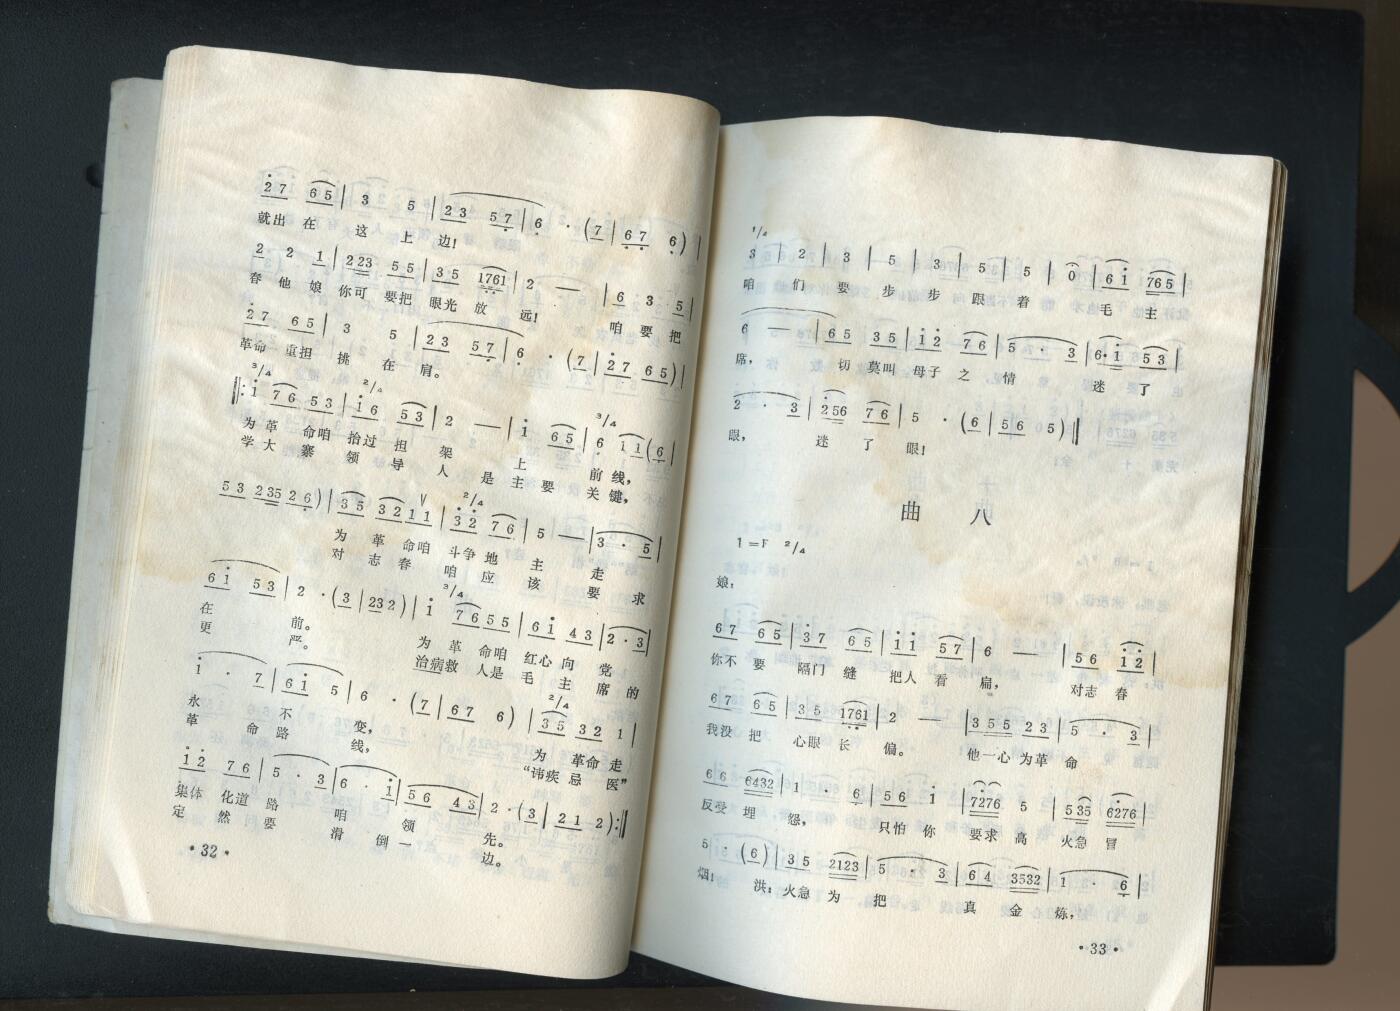 2 7 6 5 | 3 5 | 2 3 5 7 | 6 · (7 | 6 7 6) |
就出 在 这 上 边!
2 2 1 | 2 23 5 5 | 3 5 1761 | 2 — | 6 3 5 |
春 他 娘 你可 要把 眼光 放 远! 咱 要 把
2 7 6 5 | 3 5 | 2 3 5 7 | 6 · (7 | 2 7 6 5) |
革命 重担 挑 在 肩。
3/4 2/4 3/4
‖: i 7 6 5 3 | i 6 5 3 | 2 — | i 6 5 | 6 i i (6 |
为 革 命咱 抬过 担 架 上 前 线,
学 大 寨 领 导 人 是 主 要 关 键,
5 3 2 35 2 6) | 3 5 3 2 1 1 | 2/4 3 2 7 6 | 5 — | 3 · 5 |
为 革 命咱 斗争 地 主 走
对 志 春 咱 应 该 要 求
6 i 5 3 | 2 · (3 | 23 2) | i 3/4 7 6 5 5 | 6 i 4 3 | 2 · 3 |
在 前。 为 革 命咱 红心 向 党
更 严。 治病救 人是 毛 主 席 的
i · 7 | 6 i 5 | 6 · (7 | 6 7 6) | 2/4 3 5 3 2 1 |
永 不 变, 为 革命 走
革 命 路 线, “讳疾 忌 医”
i 2 7 6 | 5 · 3 | 6 · i | 5 6 4 3 | 2 · (3 | 2 1 2) :‖
集体 化道 路 咱 领 先。
定 然 要 滑 倒 一 边。
· 32 ·
1/4
3 | 2 | 3 | 5 | 3 | 5 | 5 | 0 | 6 i 765 |
咱 们 要 步 步 跟 着 毛 主
6 — — | 6 5 3 5 | i 2 7 6 | 5 · 3 | 6 · i 5 3 |
席, 切 莫叫 母子 之 情 迷 了
2 · 3 | 256 7 6 | 5 · (6 | 5 6 5) ‖
眼, 迷 了 眼!
曲 八
1=F 2/4
娘:
6 7 6 5 | 3 7 6 5 | i i 5 7 | 6 — | 5 6 i 2 |
你不 要 隔门 缝 把人 看 扁, 对志 春
6 7 6 5 | 3 5 1761 | 2 — | 3 5 5 2 3 | 5 · 3 |
我没 把 心眼 长 偏。 他一心 为革 命
6 6 6432 | 1 · 6 | 5 6 i | 7276 5 | 5 35 6276 |
反受 埋 怨, 只怕 你 要求 高 火急 冒
5 · (6) | 3 5 2123 | 5 · 3 | 6 4 3532 | 1 · 6 |
烟! 洪: 火急 为 把 真 金 炼,
· 33 ·